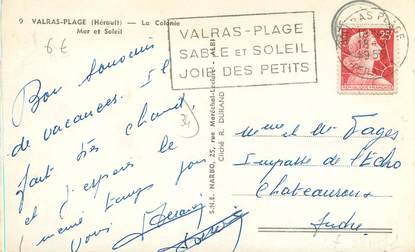 9 VALRAS-PLAGE (Hérault) — La Colonie
Mer et Soleil
6 €
VALRAS-PLAGE
SABLE ET SOLEIL
JOIE DES PETITS
VALRAS PLAGE
25F
Bon souvenir
de vacances. Il
fait très chaud,
et j'espère le
même temps pour
vous
S.N.E. NARBO, 25, rue Maréchal-Leclerc - ALBI
Cliché R. DURAND
Mme et Mr Fages
Impasse de l'Echo
Chateauroux
Indre